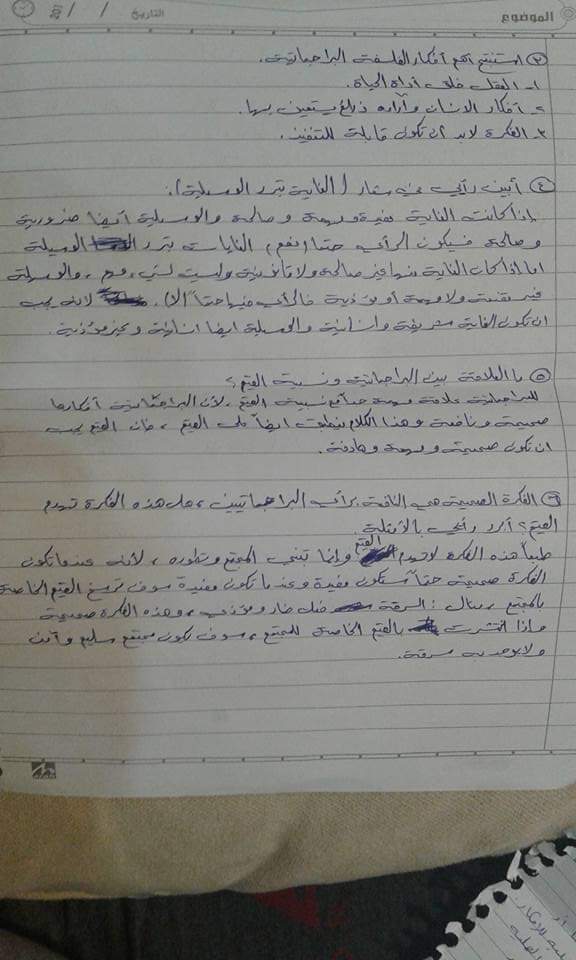 الموضوع
التاريخ / / 20
٣ استنتج أهم أفكار الفلسفة البراجماتية.
١- العقل خلق أداة الحياة.
٢- أفكار الانسان وآراءه ذرائع يستعين بها.
٣- الفكرة لابد أن تكون قابلة للتنفيذ.
٤ أبين رأيي في شعار (الغاية تبرر الوسيلة).
إذا كانت الغاية مفيدة ومهمة وصالحة والوسيلة أيضا ضرورية
وصالحة فسيكون الرأي حتما (نعم) الغايات تبرر الوسيلة
اما اذا كان الغاية منها غير صالحة ولا نافعة وليست لشيء مهم، والوسيلة
غير ولا مهمة أو مؤذية فالرأي فيها حتماً (لا). لانه يجب
ان تكون الغاية شريفة وانسانية والوسيلة ايضا انسانية وغير مؤذية.
٥ ما العلاقة بين البراجماتية ونسبية القيم؟
للبراجماتية علاقة مهمة جداً مع نسبية القيم، لأن البراجماتية أفكارها
صحيحة ونافعة وهذا الكلام ينطبق ايضاً على القيم، فان القيم يجب
ان تكون صحيحة ومهمة وهادفة.
٦ الفكرة الصحيحة هي النافعة برأي البراجماتيين، هل هذه الفكرة تهدم
القيم؟ أبرر رأيي بالأمثلة.
طبعاً هذه الفكرة لا تهدم القيم وإنما تبني المجتمع وتطوره، لأنه عندما تكون
الفكرة صحيحة حتماً ستكون مفيدة وعندما تكون مفيدة سوف ترسخ القيم الخاصة
بالمجتمع، مثال: السرقة فعل ضار ومؤذي، وهذه الفكرة صحيحة
واذا انتشرت بالقيم الخاصة للمجتمع، سوف نكون مجتمع سليم وآمن
ولا يوجد به سرقة.